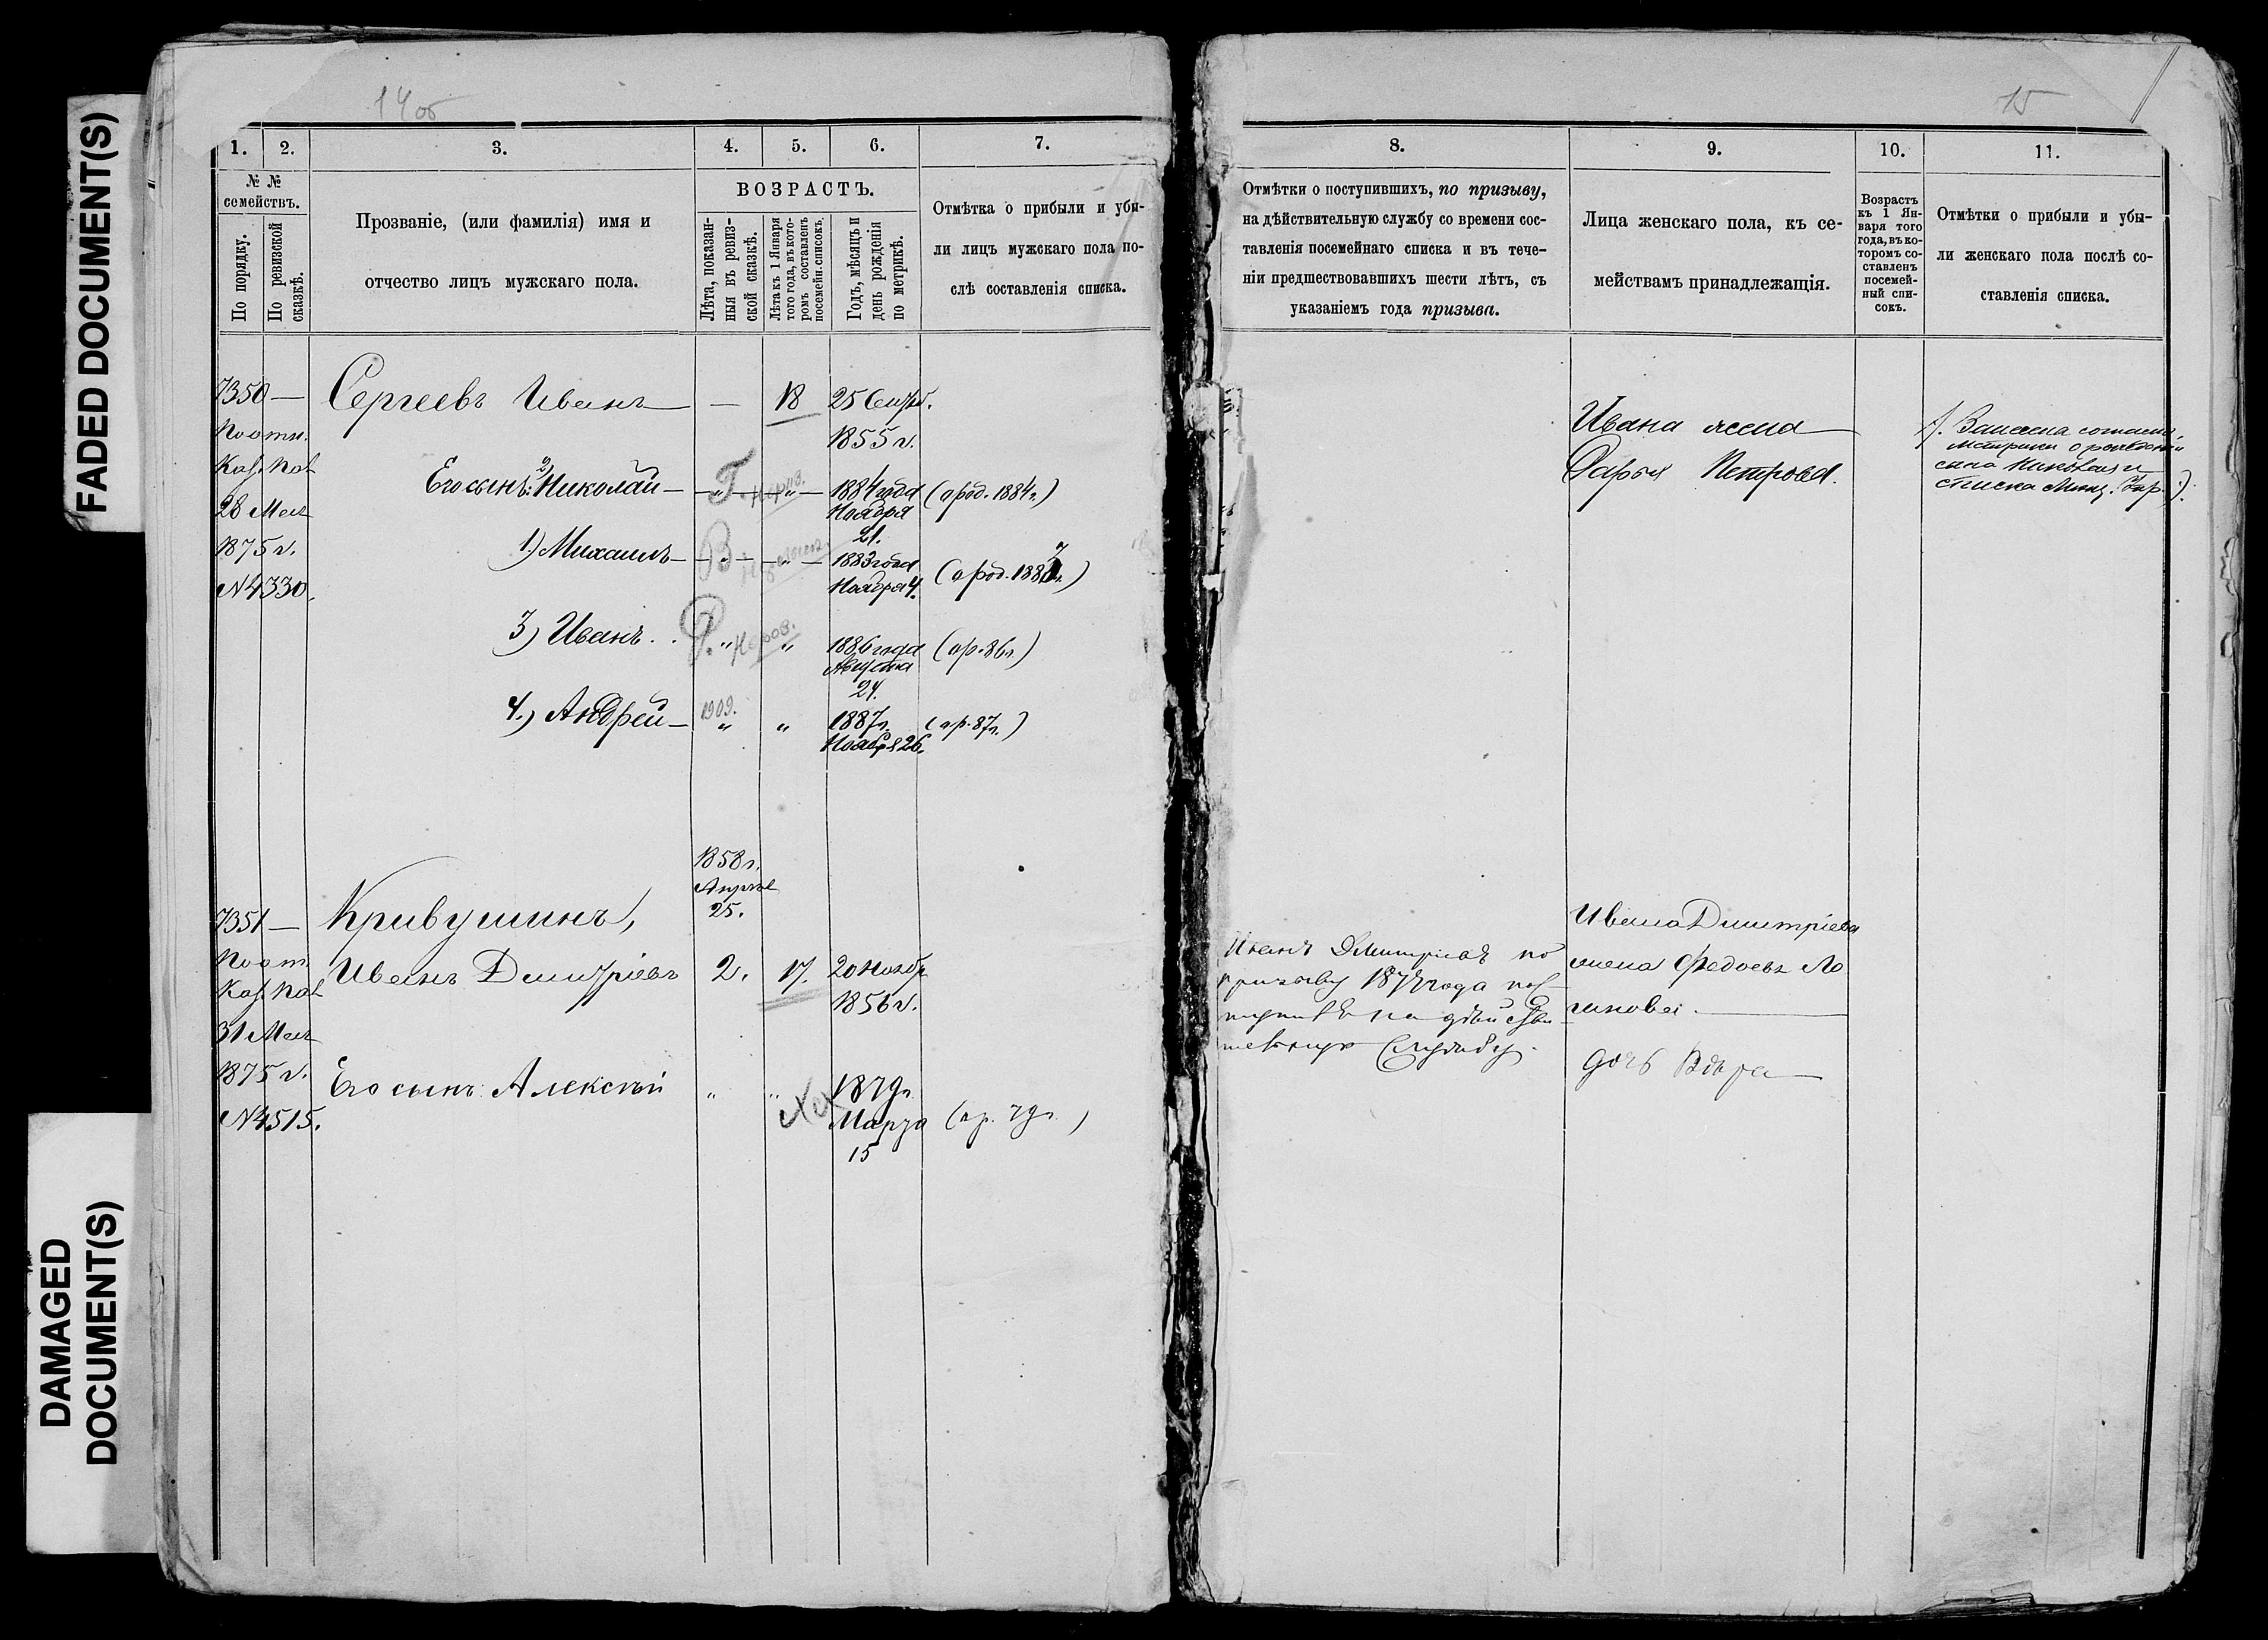 FADED DOCUMENT(S)
DAMAGED
DOCUMENT(S)
14 об
1.
2.
3.
4.
5.
6.
7.
№ №
семействъ.
По порядку.
По ревизской
сказкѣ.
Прозваніе, (или фамилія) имя и
отчество лицъ мужскаго пола.
ВОЗРАСТЪ.
Лѣта, показан-
ныя въ ревиз-
ской сказкѣ.
Лѣта къ 1 Января
того года, въ кото-
ромъ составленъ
посемейн. списокъ.
Годъ, мѣсяцъ и
день рожденія
по метрикѣ.
Отмѣтка о прибыли и убы-
ли лицъ мужскаго пола по-
слѣ составленія списка.
7350 —
По отн.
Каз. Пал
28 Мая
1875 г.
№ 4330.
Сергеевъ Иванъ — — 18 25 Сентяб.
1855 г.
Его сынъ: 2) Николай — 1884 года
Ноября
21.
(а род. 1884 г.)
1.) Михаилъ — 1883 года
Ноября 4.
(а род. 1883 г.)
3) Иванъ . . " " 1886 года
Августа
24.
(а р. 86 г.)
4.) Андрей — 1909. " " 1887 г.
Ноября 26.
(а р. 87 г.)
1858 г.
Апреля
25.
7351 —
По от.
Каз. Пал
31 Мая
1875 г.
№ 4515.
Кривушинъ,
Иванъ Дмитріевъ 2. 17. 20 Ноябр
1856 г.
Его сынъ: Алексѣй " " 1879 г.
Марта
15
(а р. 79 г.)
15
8.
9.
10.
11.
Отмѣтки о поступившихъ, по призыву,
на дѣйствительную службу со времени сос-
тавленія посемейнаго списка и въ тече-
ніи предшествовавшихъ шести лѣтъ, съ
указаніемъ года призыва.
Лица женскаго пола, къ се-
мействамъ принадлежащія.
Возрастъ
къ 1 Ян-
варя того
года, въ ко-
торомъ со-
ставленъ
посемей-
ный спи-
сокъ.
Отмѣтки о прибыли и убы-
ли женскаго пола послѣ со-
ставленія списка.
Ивана жена —
Дарья Петрова.
Занесена согласно
метрики о рожденіи
сына Николая и
списка Мищ. Упр.
Иванъ Дмитріевъ по
призыву 1877 года пос-
тупилъ на дѣйстви-
тельную Службу.
Ивана Дмитріева
жена Федосья Ло
гинова. —
дочь Вѣра —